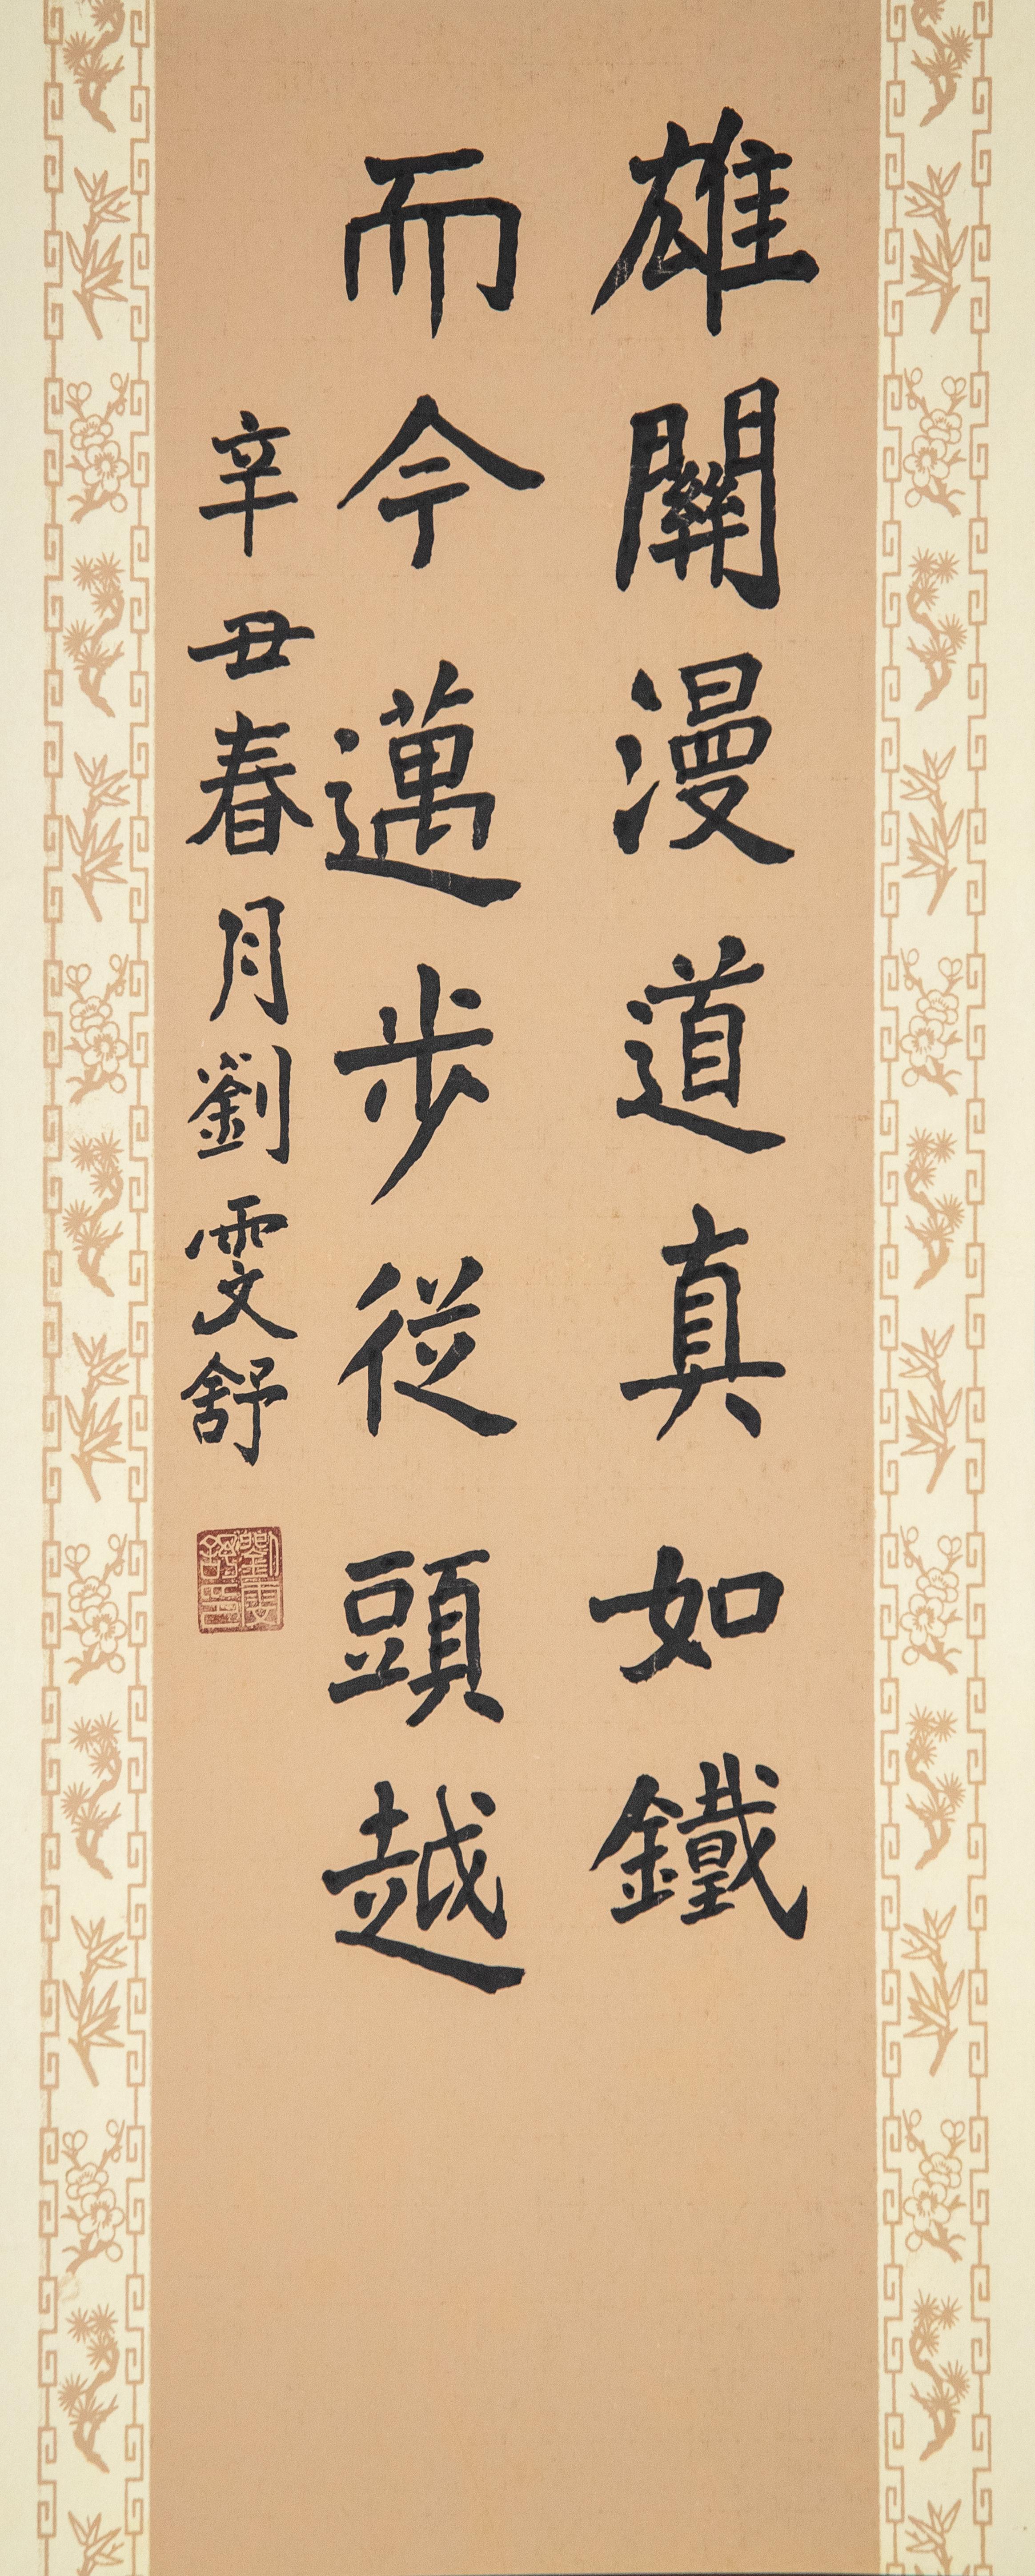 雄關漫道真如鐵
而今邁步從頭越
辛丑春月劉雯舒
劉雯舒印